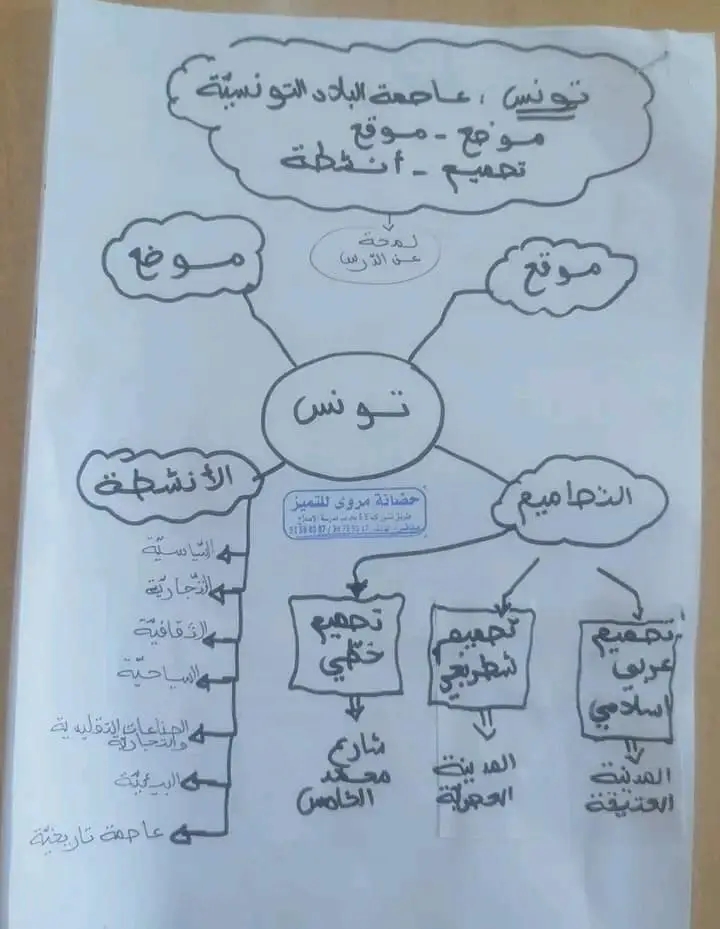 تونس : عاصمة البلاد التونسيّة
موضع - موقع
تصميم - أنشطة
لمحة
عن الدّرس
موقع
موضع
تونس
الأنشطة
التصاميم
حضانة مروى للتميز
السّياسيّة
التّجاريّة
الثّقافيّة
السياحيّة
الصناعات التقليدية
والتجاريّة
البيئيّة
عاصمة تاريخيّة
تصميم
عربي
اسلامي
المدينة
العتيقة
تصميم
شطرنجي
المدينة
العصريّة
تصميم
خطّي
شارع
محمد
الخامس